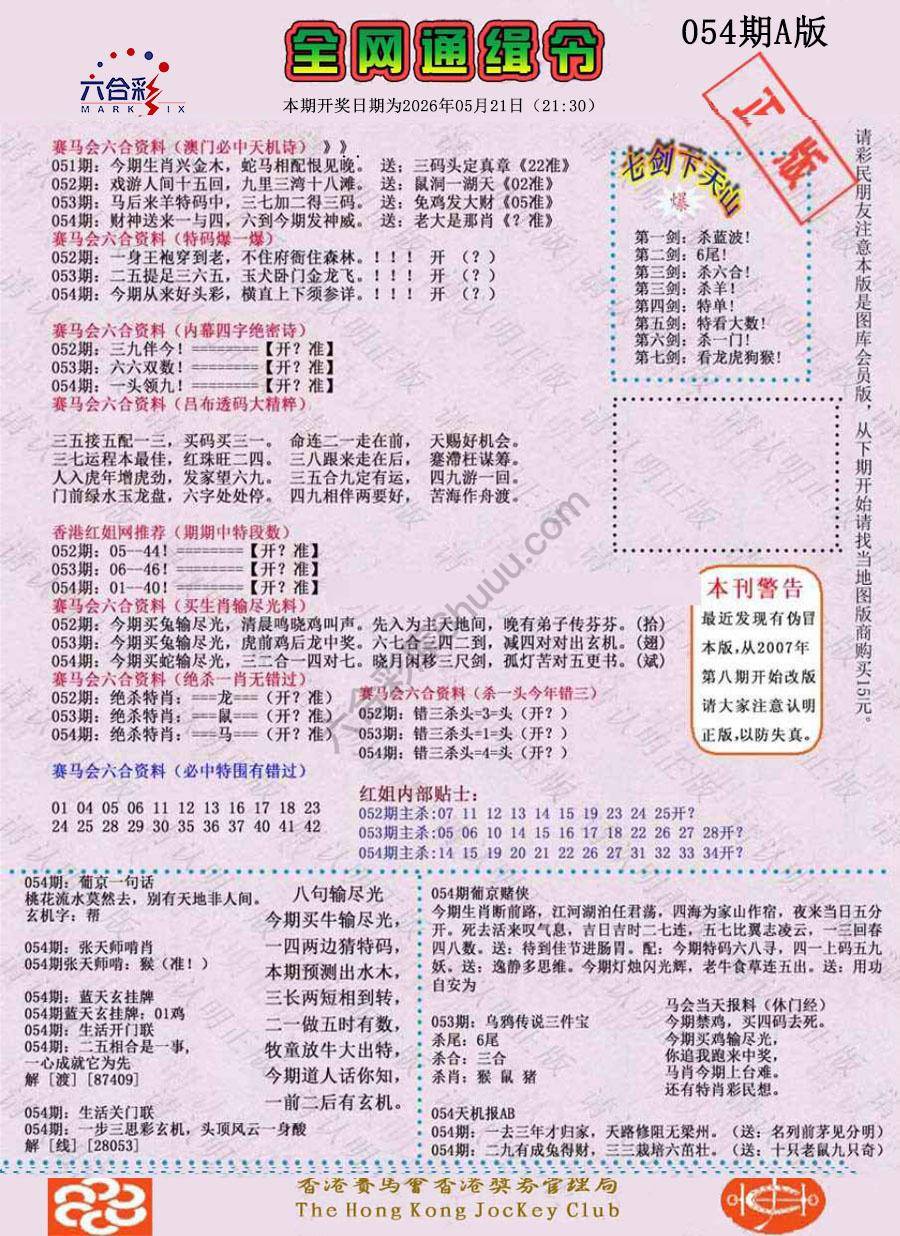 054期A版
全网通缉令
六合彩
MARK SIX
本期开奖日期为2026年05月21日（21:30）
正版
赛马会六合资料（澳门必中天机诗）》》
051期：今期生肖兴金木，蛇马相配恨见晚。 送：三码头定真章《22准》
052期：戏游人间十五回，九里三湾十八滩。 送：鼠洞一湖天《02准》
053期：马后来羊特码中，三七加二得三码。 送：免鸡发大财《05准》
054期：财神送来一与四，六到今期发神威。 送：老大是那肖《？准》
赛马会六合资料（特码爆一爆）
052期：一身王袍穿到老，不住府衙住森林。！！！ 开 （？）
053期：二五提足三六五，玉犬卧门金龙飞。！！！ 开 （？）
054期：今期从来好头彩，横直上下须参详。！！！ 开 （？）
赛马会六合资料（内幕四字绝密诗）
052期：三九伴今！========【开？准】
053期：六六双数！========【开？准】
054期：一头领九！========【开？准】
赛马会六合资料（吕布透码大精粹）
三五接五配一三，买码买三一。 命连二一走在前， 天赐好机会。
三七运程本最佳，红珠旺二四。 三八跟来走在后， 蹇滞枉谋筹。
人入虎年增虎劲，发家望六九。 三五合九定有运， 四九游一回。
门前绿水玉龙盘，六字处处停。 四九相伴两要好， 苦海作舟渡。
香港红姐网推荐（期期中特段数）
052期：05--44！========【开？准】
053期：06--46！========【开？准】
054期：01--40！========【开？准】
赛马会六合资料（买生肖输尽光料）
052期：今期买兔输尽光，清晨鸣晓鸡叫声。先入为主天地间，晚有弟子传芬芬。(拾)
053期：今期买虎输尽光，虎前鸡后龙中奖。六七合三四二到，减四对对出玄机。(翅)
054期：今期买蛇输尽光，三二合一四对七。晓月闲移三尺剑，孤灯苦对五更书。(斌)
赛马会六合资料（绝杀一肖无错过）
052期：绝杀特肖：===龙===（开？准）
053期：绝杀特肖：===鼠===（开？准）
054期：绝杀特肖：===马===（开？准）
赛马会六合资料（杀一头今年错三）
052期：错三杀头=3=头（开？）
053期：错三杀头=1=头（开？）
054期：错三杀头=4=头（开？）
赛马会六合资料（必中特围有错过）
01 04 05 06 11 12 13 16 17 18 23
24 25 28 29 30 35 36 37 40 41 42
红姐内部贴士：
052期主杀:07 11 12 13 14 15 19 23 24 25开？
053期主杀:05 06 10 14 15 16 17 18 22 26 27 28开？
054期主杀:14 15 19 20 21 22 26 27 31 32 33 34开？
七剑下天山
爆
第一剑：杀蓝波！
第二剑：6尾！
第三剑：杀六合！
第三剑：杀羊！
第四剑：特单！
第五剑：特看大数！
第六剑：杀一门！
第七剑：看龙虎狗猴！
本刊警告
最近发现有伪冒
本版,从2007年
第八期开始改版
请大家注意认明
正版,以防失真。
请彩民朋友注意本版是图库会员版，从下期开始请找当地图版商购买15元。
054期：葡京一句话
桃花流水莫然去，别有天地非人间。
玄机字：帮
054期：张天师啃肖
054期张天师啃：猴（准！）
054期：蓝天玄挂牌
054期蓝天玄挂牌：01鸡
054期：生活开门联
054期：二五相合是一事，
一心成就它为先
解［渡］[87409]
054期：生活关门联
054期：一步三思彩玄机，头顶风云一身酸
解［线］[28053]
八句输尽光
今期买牛输尽光，
一四两边猜特码，
本期预测出水木，
三长两短相到转，
二一做五时有数，
牧童放牛大出特，
今期道人话你知，
一前二后有玄机。
054期葡京赌侠
今期生肖断前路，江河湖泊任君荡，四海为家山作宿，夜来当日五分
开。死去活来叹气息，吉日吉时二七连，五七比翼志凌云，一三回春
四八数。送：待到佳节进肠胃。配：今期特码六八寻，四一上码五九
妖。送：逸静多思维。今期灯烛闪光辉，老牛食草连五出。送：用功
自安为
053期：乌鸦传说三件宝
杀尾：6尾
杀合：三合
杀肖：猴 鼠 猪
马会当天报料（休门经）
今期禁鸡，买四码去死。
今期买鸡输尽光，
你追我跑来中奖，
马肖今期上台难。
还有特肖彩民想。
054天机报AB
054期：一去三年才归家，天路修阻无梁州。（送：名列前茅见分明）
054期：二九有成兔得财，三三栽培六茁壮。（送：十只老鼠九只奇）
香港赛马會香港獎券管理局
The Hong Kong JocKey Club